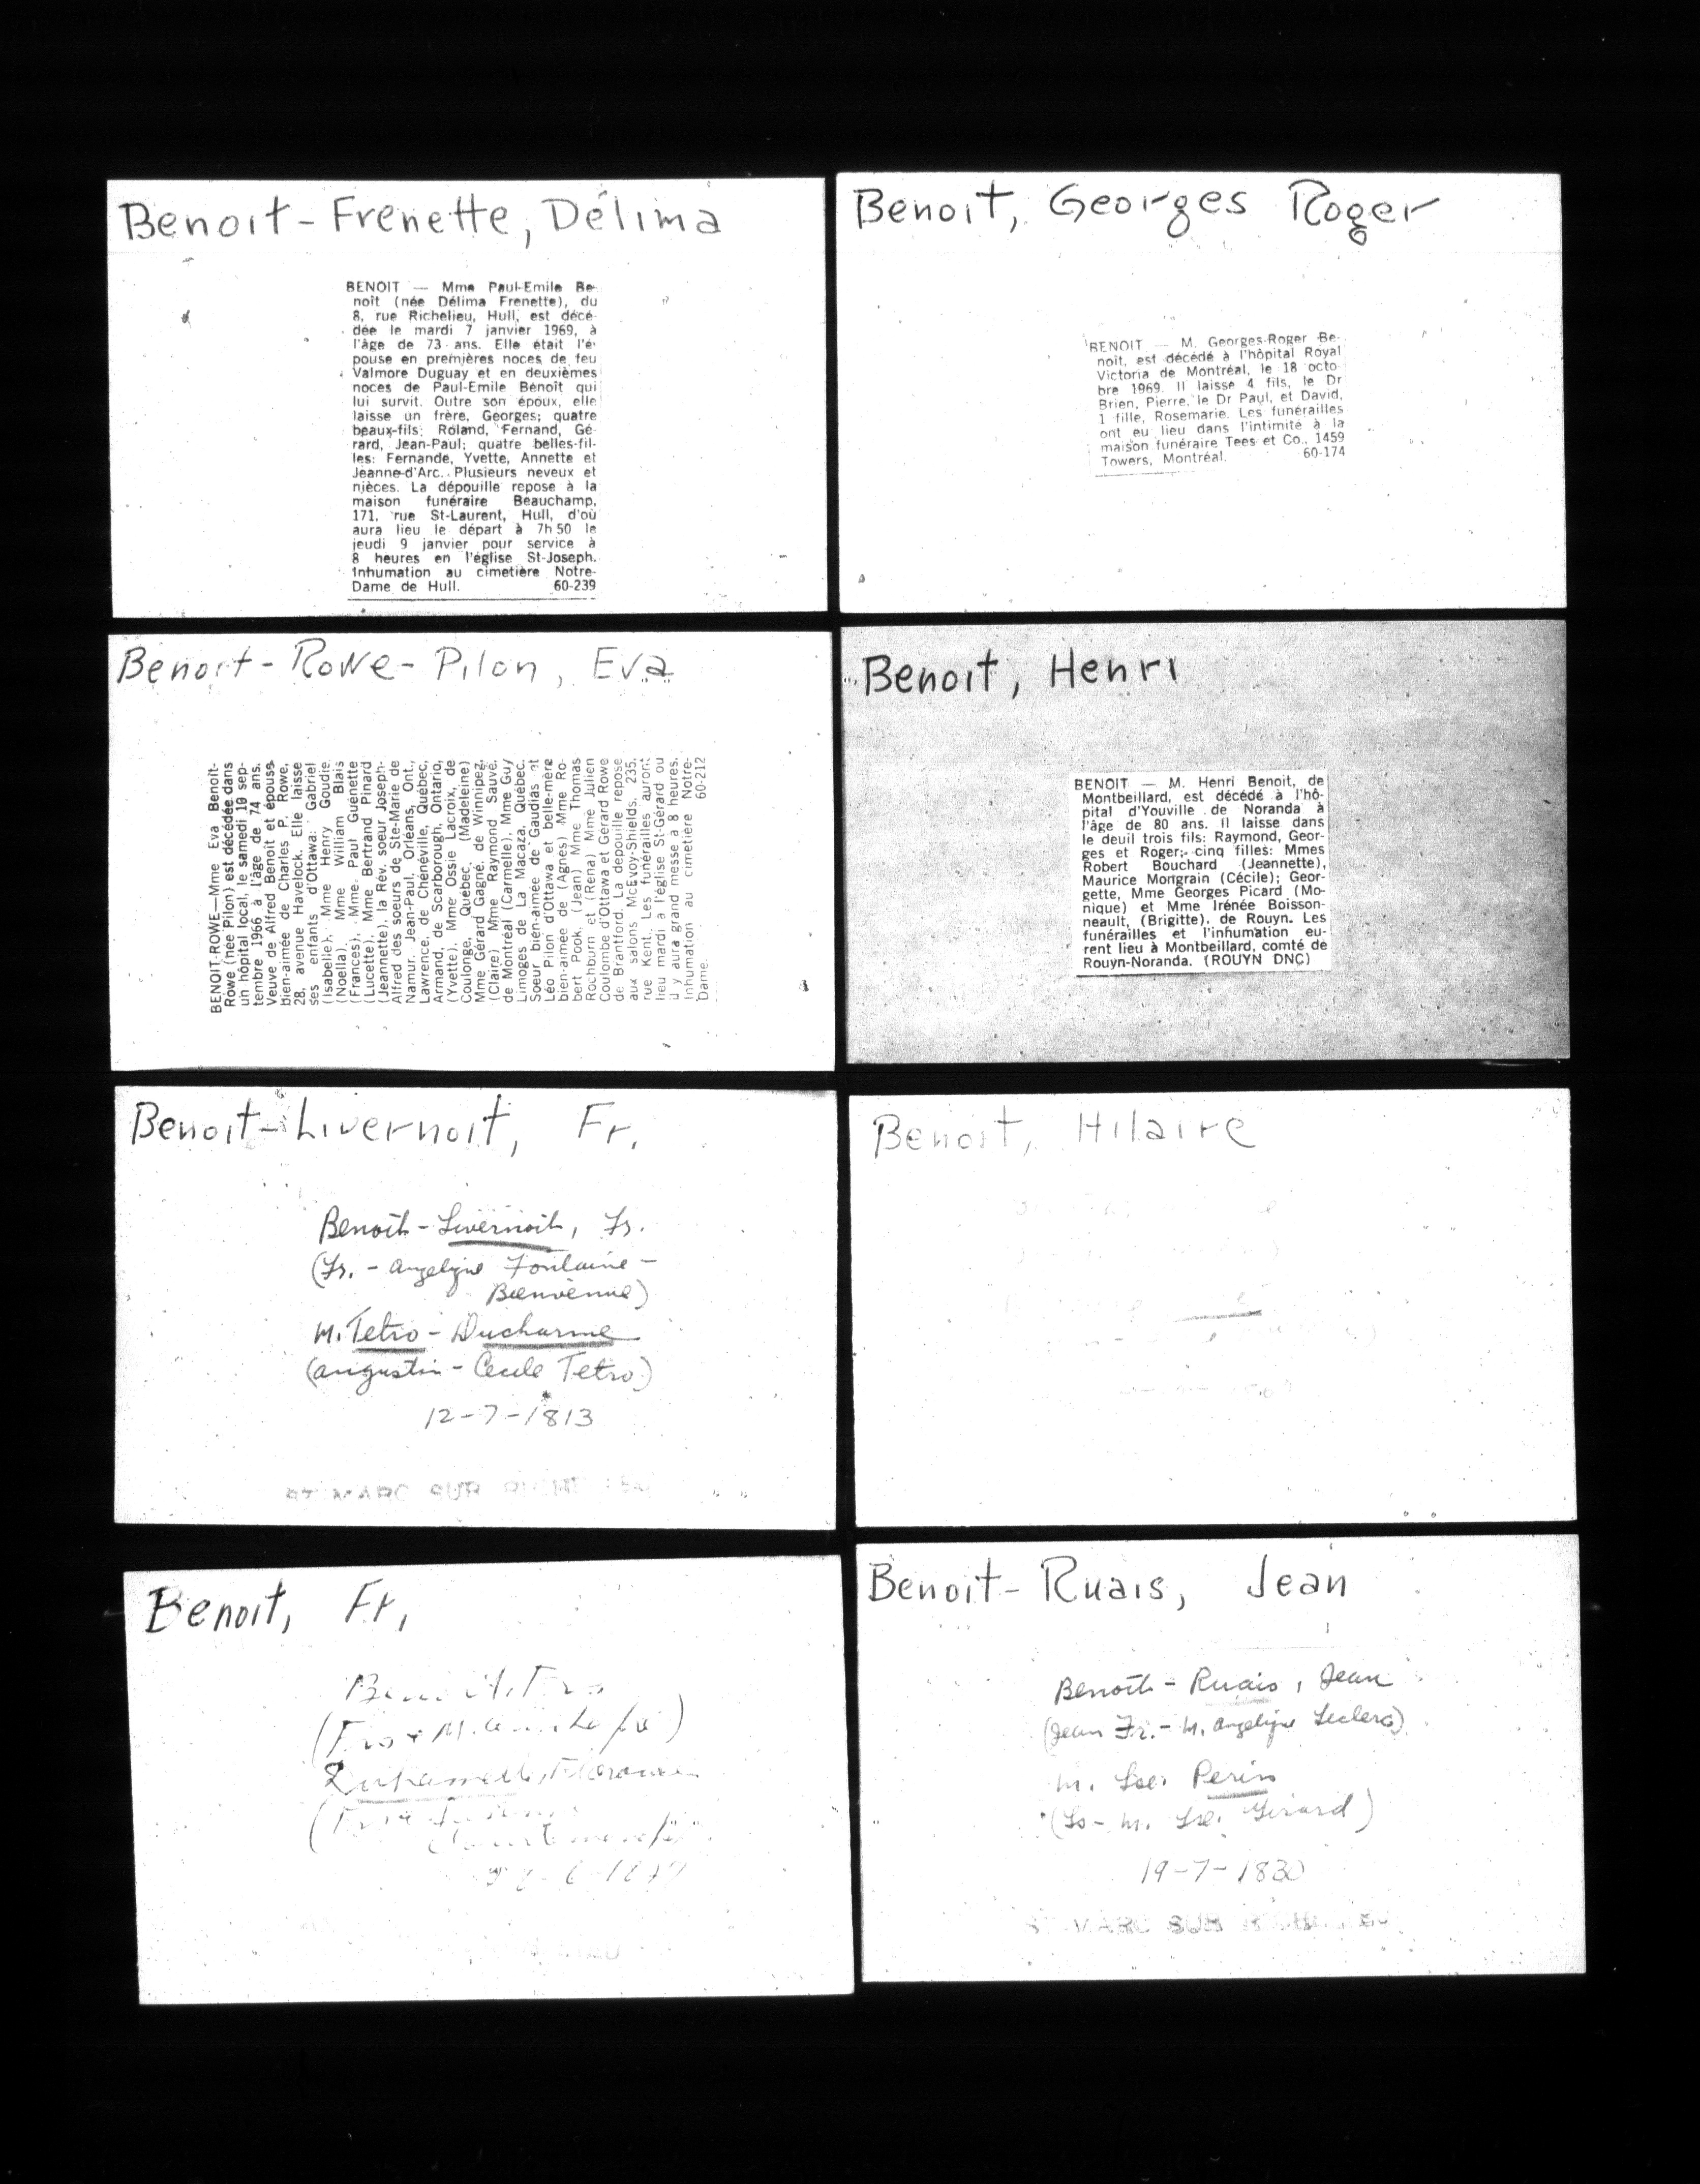 Benoit-Frenette, Délima
BENOIT — Mme Paul-Emile Be-
noît (née Délima Frenette), du
8, rue Richelieu, Hull, est décé-
dée le mardi 7 janvier 1969, à
l'âge de 73 ans. Elle était l'é-
pouse en premières noces de feu
Valmore Duguay et en deuxièmes
noces de Paul-Emile Benoît qui
lui survit. Outre son époux, elle
laisse un frère, Georges; quatre
beaux-fils: Roland, Fernand, Gé-
rard, Jean-Paul; quatre belles-fil-
les: Fernande, Yvette, Annette et
Jeanne-d'Arc. Plusieurs neveux et
nièces. La dépouille repose à la
maison funéraire Beauchamp,
171, rue St-Laurent, Hull, d'où
aura lieu le départ à 7h 50 le
jeudi 9 janvier pour service à
8 heures en l'église St-Joseph.
Inhumation au cimetière Notre-
Dame de Hull. 60-239
Benoit, Georges Roger
BENOIT — M. Georges-Roger Be-
noît, est décédé à l'hôpital Royal
Victoria de Montréal, le 18 octo-
bre 1969. Il laisse 4 fils, le Dr
Brien, Pierre, le Dr Paul, et David,
1 fille, Rosemarie. Les funérailles
ont eu lieu dans l'intimité à la
maison funéraire Tees et Co., 1459
Towers, Montréal. 60-174
Benoit-Rowe-Pilon, Eva
BENOIT-ROWE—Mme Eva Benoît-
Rowe (née Pilon) est décédée dans
un hôpital local, le samedi 10 sep-
tembre 1966 à l'âge de 74 ans.
Veuve de Alfred Benoit et épouse
bien-aimée de Charles P. Rowe,
28, avenue Havelock. Elle laisse
ses enfants d'Ottawa: Gabriel
(Isabelle), Mme Henry Goudie
(Noella), Mme William Blais
(Frances), Mme Paul Guénette
(Lucette), Mme Bertrand Pinard
(Jeannette), la Rév. soeur Joseph-
Alfred des soeurs de Ste-Marie de
Namur, Jean-Paul, Orléans, Ont.,
Lawrence, de Chénéville, Québec,
Armand, de Scarborough, Ontario,
(Yvette), Mme Ossie Lacroix, de
Coulonge, Québec, (Madeleine)
Mme Gérard Gagné, de Winnipeg,
(Claire) Mme Raymond Sauvé,
de Montréal (Carmelle), Mme Guy
Limoges de La Macaza, Québec.
Soeur bien-aimée de Gaudias et
Léo Pilon d'Ottawa et belle-mère
bien-aimée de (Agnes) Mme Ro-
bert Pook, (Jean) Mme Thomas
Rochburn et (Rena) Mme Julien
Coulombe d'Ottawa et Gérard Rowe
de Brantford. La dépouille repose
aux salons McEvoy-Shields, 235,
rue Kent. Les funérailles auront
lieu mardi à l'église St-Gérard où
il y aura grand messe à 8 heures.
Inhumation au cimetière Notre-
Dame. 60-212
Benoit, Henri
BENOIT — M. Henri Benoit, de
Montbeillard, est décédé à l'hô-
pital d'Youville de Noranda à
l'âge de 80 ans. Il laisse dans
le deuil trois fils: Raymond, Geor-
ges et Roger; cinq filles: Mmes
Robert Bouchard (Jeannette),
Maurice Mongrain (Cécile); Geor-
gette, Mme Georges Picard (Mo-
nique) et Mme Irénée Boisson-
neault, (Brigitte), de Rouyn. Les
funérailles et l'inhumation eu-
rent lieu à Montbeillard, comté de
Rouyn-Noranda. (ROUYN DNC)
Benoit-Livernoit, Fr.
Benoit-Livernoit, Fr.
(Fr. - Angelique Fontaine-
Bienvenue)
M. Tetro-Ducharme
(Augustin - Cecile Tetro)
12-7-1813
ST MARC SUR
Benoit, Hilaire
Benoit, Fr.
Benoit-Ruais, Jean
Benoit-Ruais, Jean
(Jean Fr. - M. Angelique Leclerc)
M. Lse. Perin
(Ls - M. Lse. Girard)
19-7-1830
MARC SUR